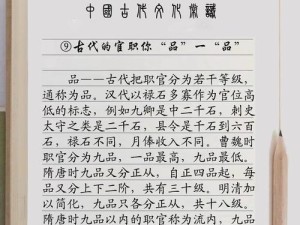 中國古代文化常識
⑨古代的官职你“品”一“品”
品——古代把职官分为若干等级，
通称为品。汉代以禄石多寡作为官位高
低的标志，例如九卿是中二千石，刺史
太守之类是二千石，县令是千石到六百
石，禄石不同，月俸收入不同。曹魏时
职官分为九品，一品最高，九品最低。
隋唐时九品又分正从，自正四品起，每
品又分上下二阶，共有三十级。明清加
以简化，九品只各分正从，共十八级。
隋唐时九品以内的职官称为流内，九品